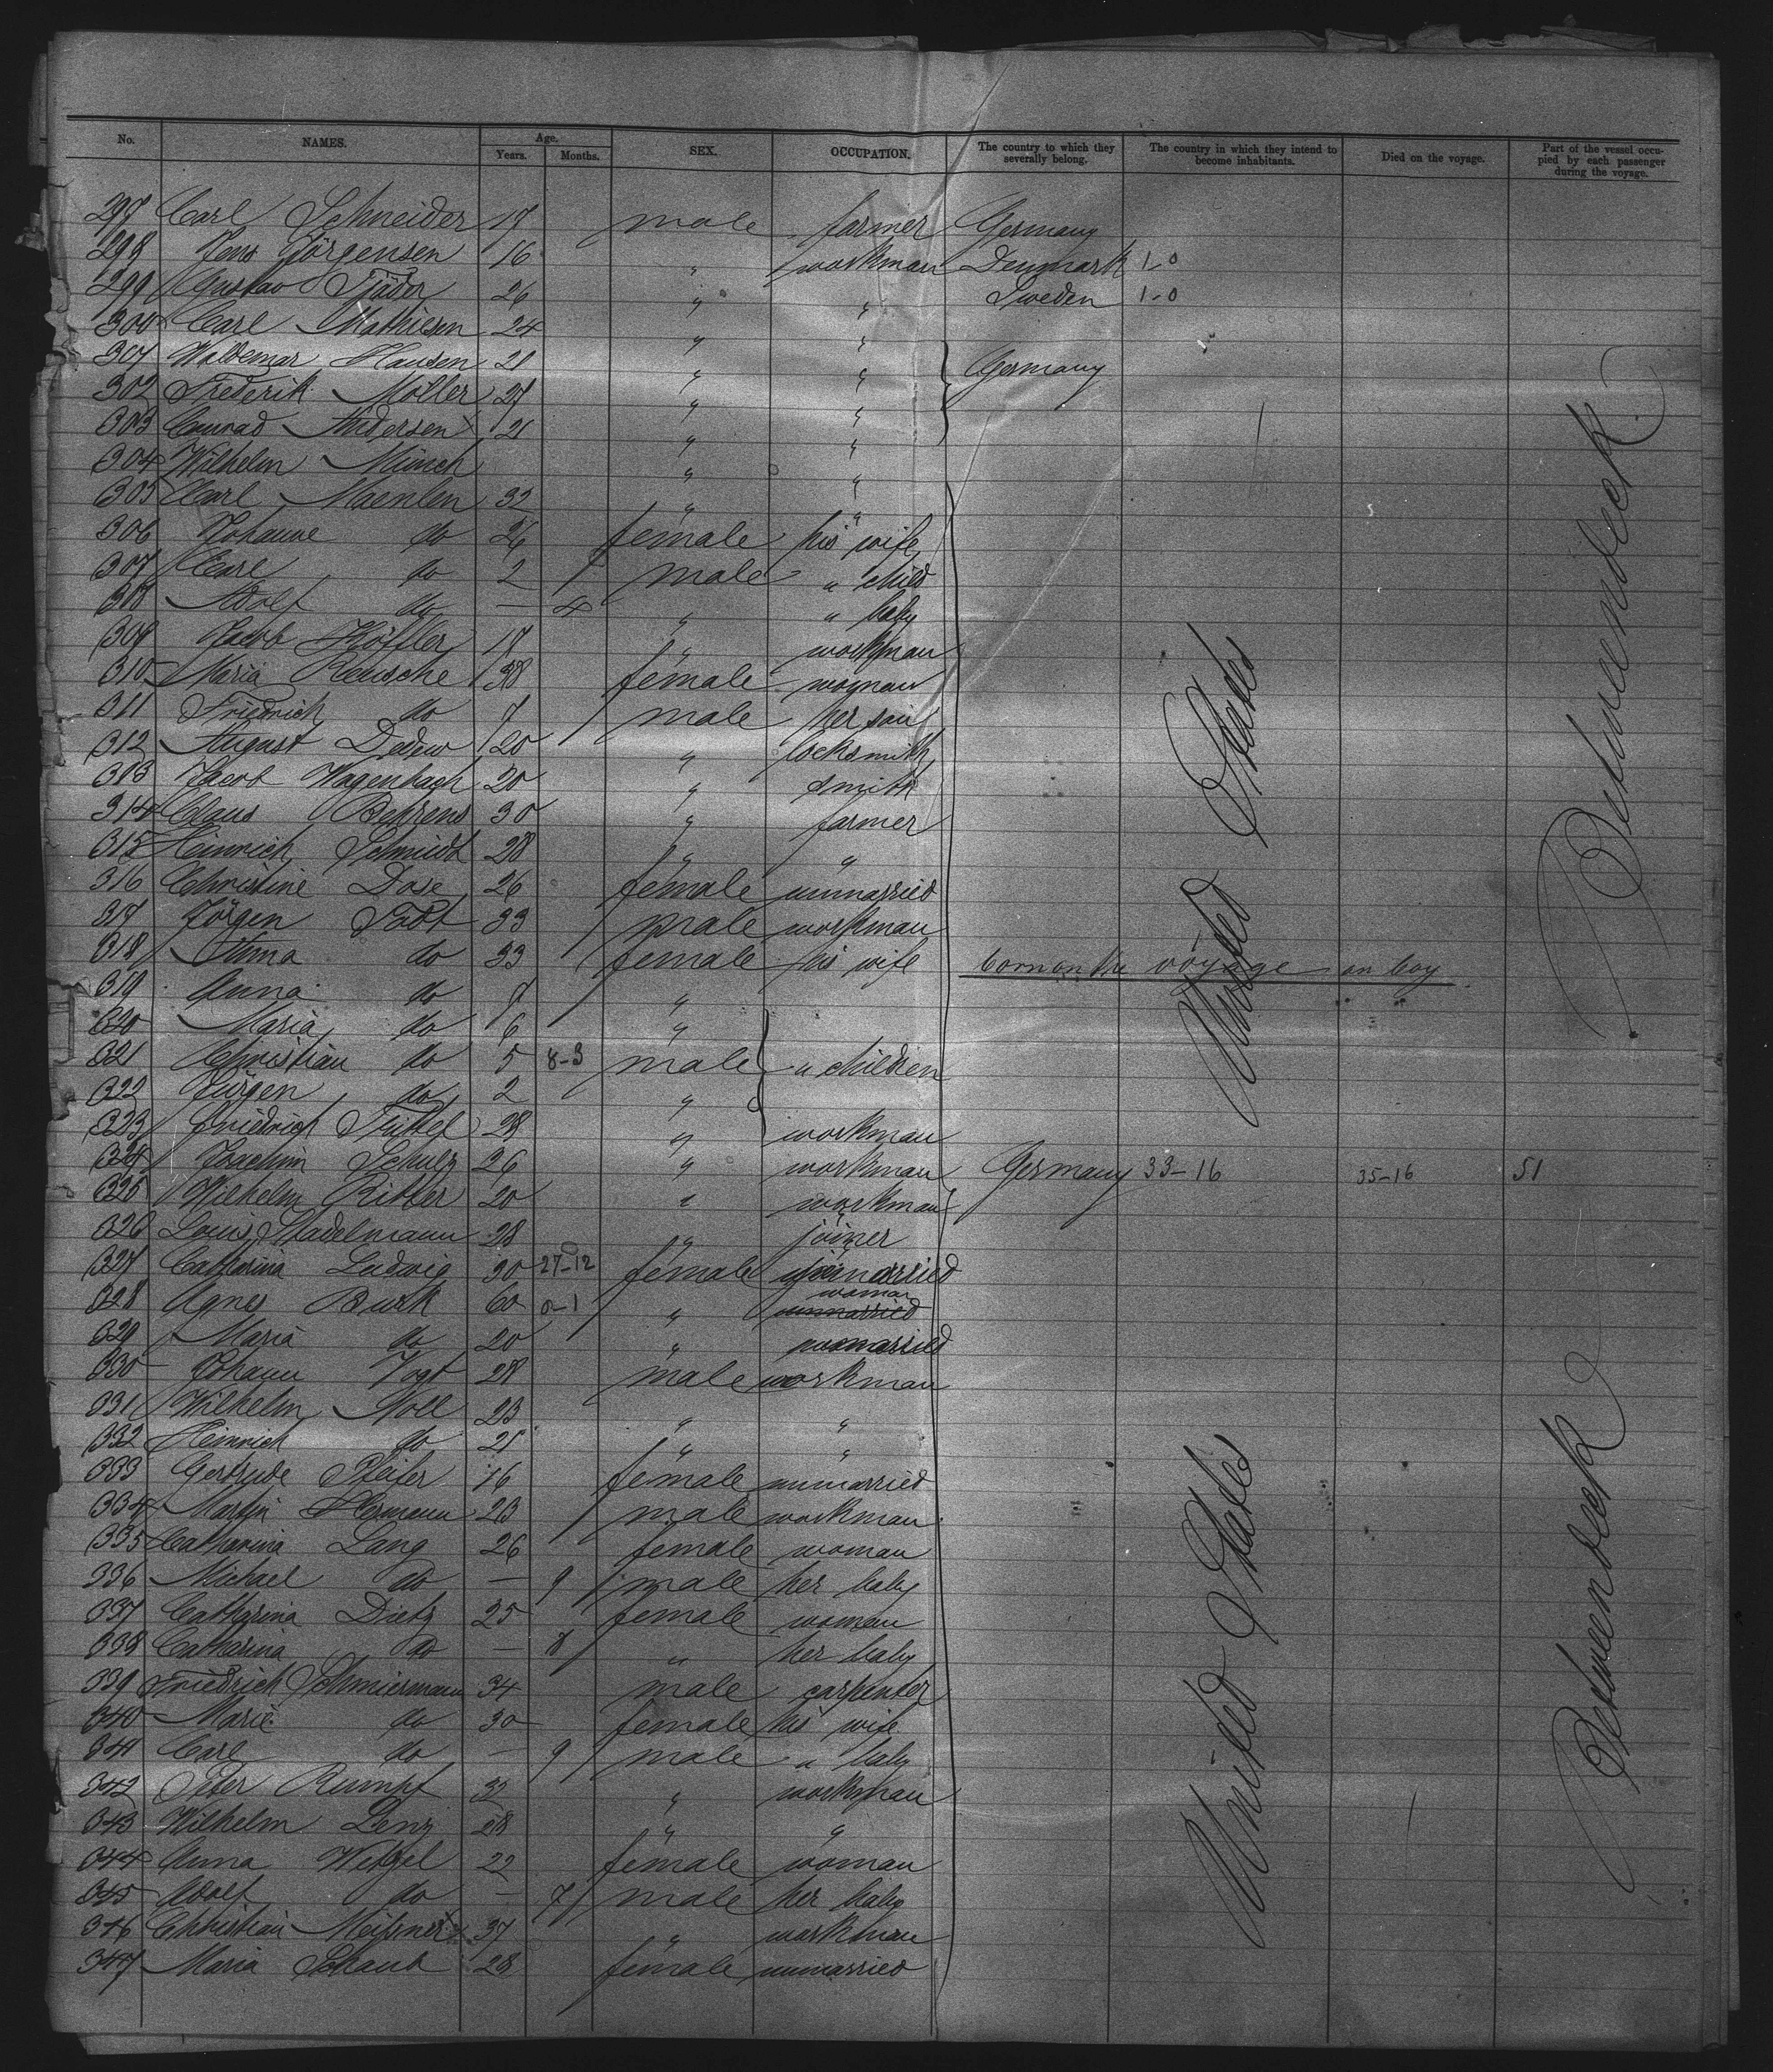 No. NAMES. Age. Years. Months. SEX. OCCUPATION. The country to which they severally belong. The country in which they intend to become inhabitants. Died on the voyage. Part of the vessel occupied by each passenger during the voyage.
297 Carl Schneider 17 male farmer Germany
298 Jens Jörgensen 16 " workman Denmark 1-0
299 Gustav 26 " " Sweden 1-0
300 Carl Mathiesen 24 " "
301 Waldemar Hansen 21 " " Germany
302 Frederik Möller 27 " "
303 Conrad Andersen 21 " "
304 Wilhelm Münch " "
305 Carl Maenlen 32 " "
306 Johanne do 26 female his wife
307 Carl do 2 male " child
308 Adolf do — 4 " " baby
309 Jacob Höffler 17 " workman
310 Maria Reusche 38 female woman
311 Friedrich do 7 male her son
312 August Dedew 20 " locksmith
313 Jacob Wagenbach 20 " smith
314 Claus Behrens 30 " farmer
315 Heinrich Schmidt 28 " "
316 Christine Dose 26 female unmarried
317 Jörgen Todt 33 male workman
318 Anna do 33 female his wife born on the voyage an boy
319 Anna do 7 "
320 Maria do 6 "
321 Christian do 5 8-3 male " children
322 Jürgen do 2 "
323 Friedrich 28 " workman
324 Joachim Schulz 26 " workman Germany 33-16 35-16 51
325 Wilhelm Ritter 20 " workman
326 Louis Stadelmann 28 " joiner
327 Catharina Ludwig 30 27-12 female unmarried
328 Agnes Burk 60 0-1 " unmarried woman
329 Maria do 20 " unmarried
330 Johann Vogt 28 male workman
331 Wilhelm Noll 23 " "
332 Heinrich do 21 " "
333 Gertrude Pfeifer 16 female unmarried
334 Martin Hermann 23 male workman
335 Catharina Lang 26 female woman
336 Michael do — 9 male her baby
337 Catharina Dietz 25 female woman
338 Catharina do — 8 " her baby
339 Friedrich Schmiermann 34 male carpenter
340 Marie do 30 female his wife
341 Carl do — 9 male " baby
342 Peter Rumpf 32 " workman
343 Wilhelm Lenz 28 " "
344 Anna Wetzel 22 female woman
345 Adolf do — 7 male her baby
346 Christian Meißner 37 " workman
347 Maria Schaub 28 female unmarried
United States
United States
Betweendeck
Betweendeck